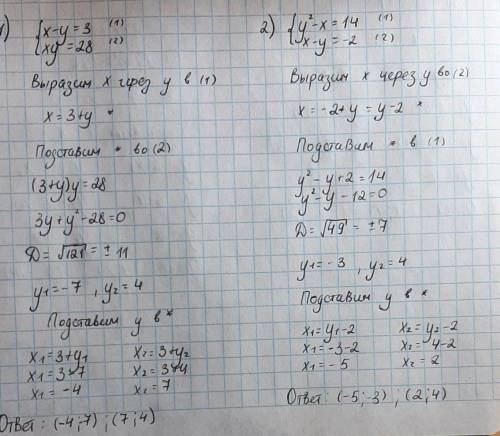 1) {x-y=3 (1)
xy=28 (2)
Выразим x через y в (1)
x=3+y *
Подставим * во (2)
(3+y)y=28
3y+y²-28=0
D=√121=±11
y1=-7, y2=4
Подставим y в *
x1=3+y1 x2=3+y2
x1=3-7 x2=3+4
x1=-4 x2=7
Ответ: (-4;7);(7;4)
2) {y²-x=14 (1)
x-y=-2 (2)
Выразим x через y во (2)
x=-2+y=y-2 *
Подставим * в (1)
y²-y+2=14
y²-y-12=0
D=√49=±7
y1=-3, y2=4
Подставим y в *
x1=y1-2 x2=y2-2
x1=-3-2 x2=4-2
x1=-5 x2=2
Ответ: (-5;-3);(2;4)